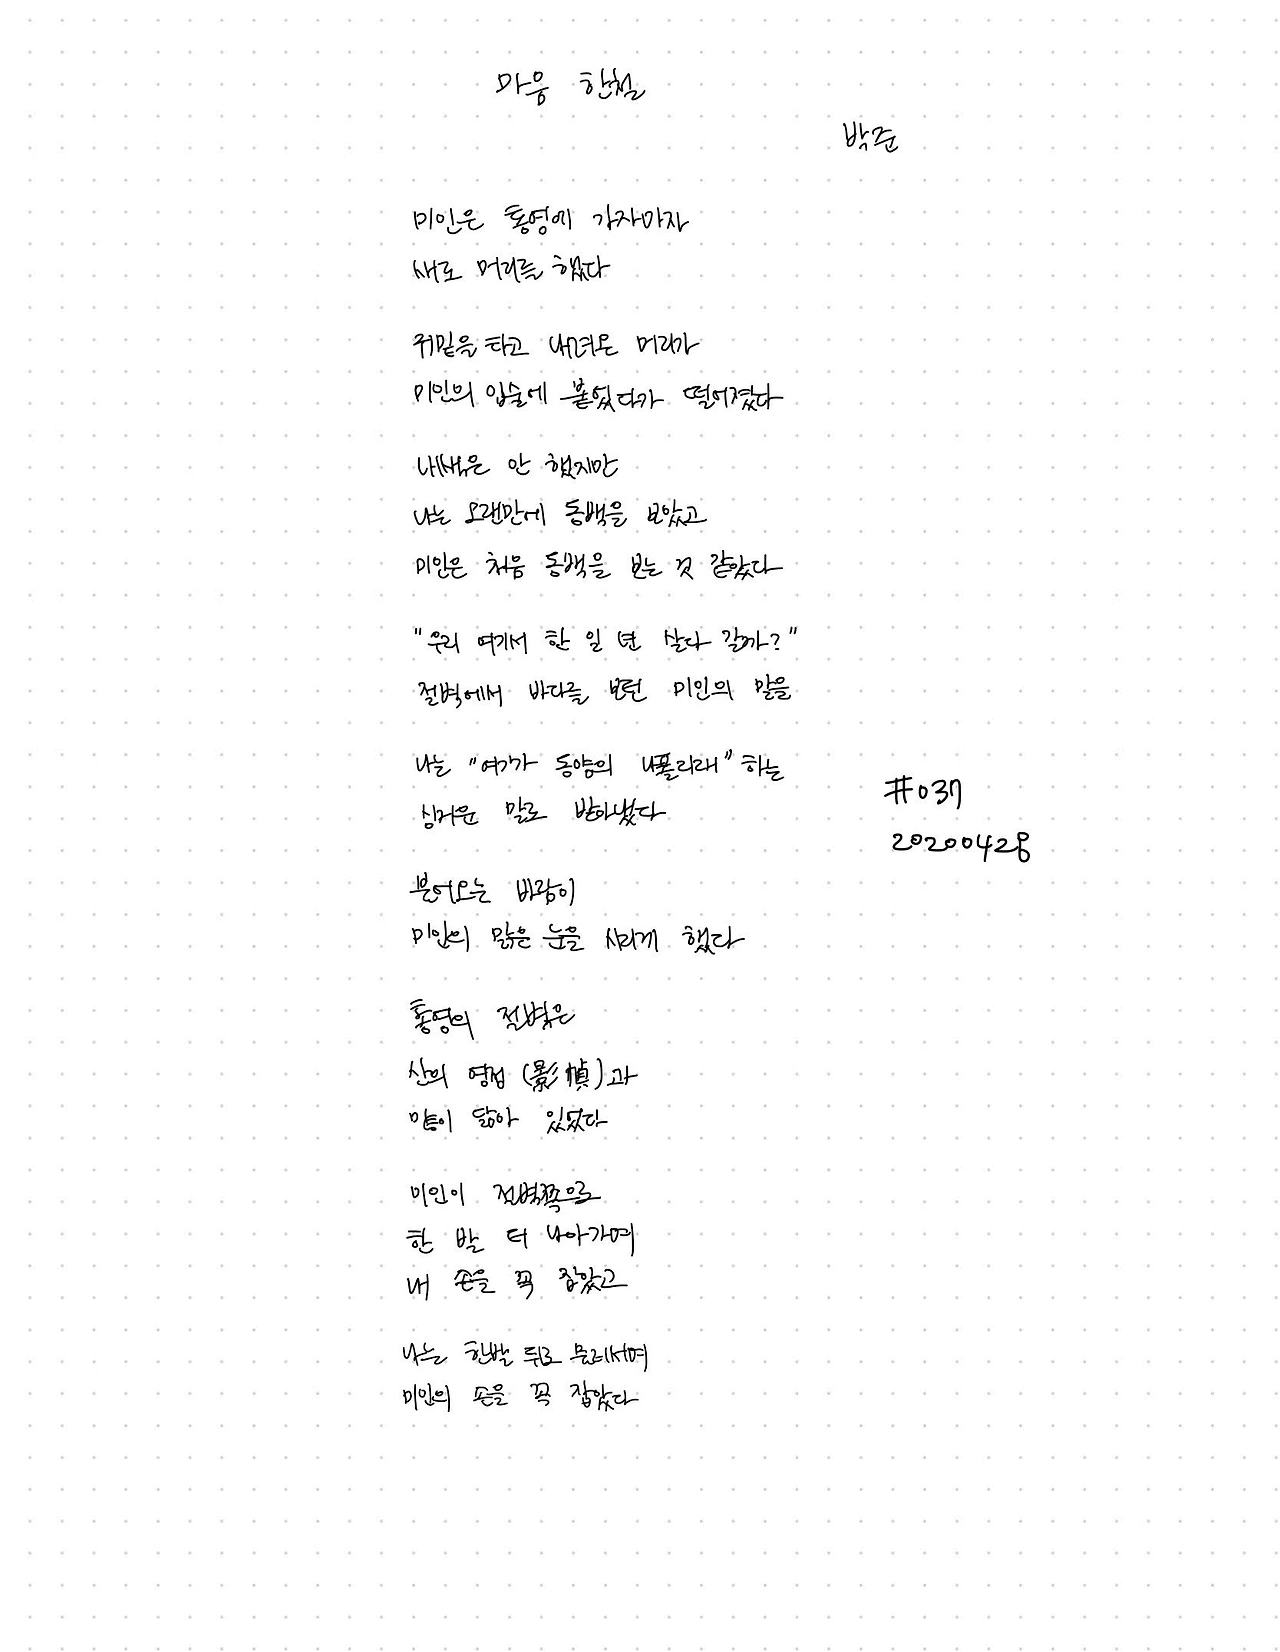 마음 한철
박준
미인은 통영에 가자마자
새로 머리를 했다
귀밑을 타고 내려온 머리가
미인의 입술에 붙었다가 떨어졌다
내색은 안 했지만
나는 오랜만에 동백을 보았고
미인은 처음 동백을 보는 것 같았다
"우리 여기서 한 일 년 살다 갈까?"
절벽에서 바다를 보던 미인의 말을
나는 "여기가 동양의 나폴리래" 하는
싱거운 말로 받아냈다
불어오는 바람이
미인의 맑은 눈을 시리게 했다
통영의 절벽은
산의 영정(影幀)과
많이 닮아 있었다
미인이 절벽쪽으로
한 발 더 나아가며
내 손을 꼭 잡았고
나는 한발 뒤로 물러서며
미인의 손을 꼭 잡았다
#037
20200428